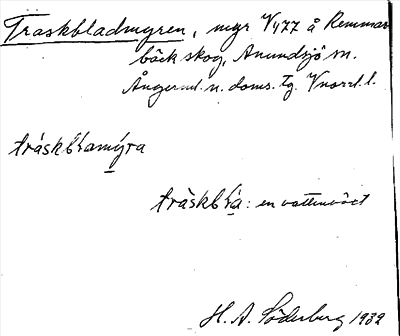 Traskbladmyren, myr V 477 å Remmar-
bäck skog, Anundsjö sn.
Ångerml. n. doms. Tg. Vnorrl. l.
tráskb̀ɫamýra
tràskb̀ɫa: en vattenväxt
H. A. Söderberg 1932